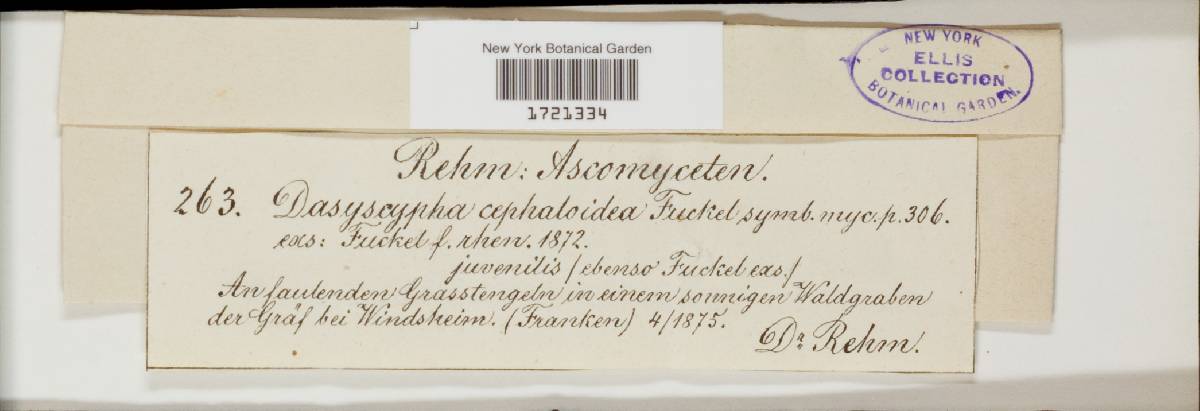 New York Botanical Garden
1721334
NEW YORK
ELLIS
COLLECTION
BOTANICAL GARDEN.
Rehm: Ascomyceten.
263. Dasyscypha cephaloidea Fuckel symb. myc. p. 306.
exs: Fuckel f. rhen. 1872.
juvenilis / ebenso Fuckel exs./
An faulenden Grasstengeln in einem sonnigen Waldgraben
der Gräf bei Windsheim. (Franken) 4/1875.
Dr. Rehm.